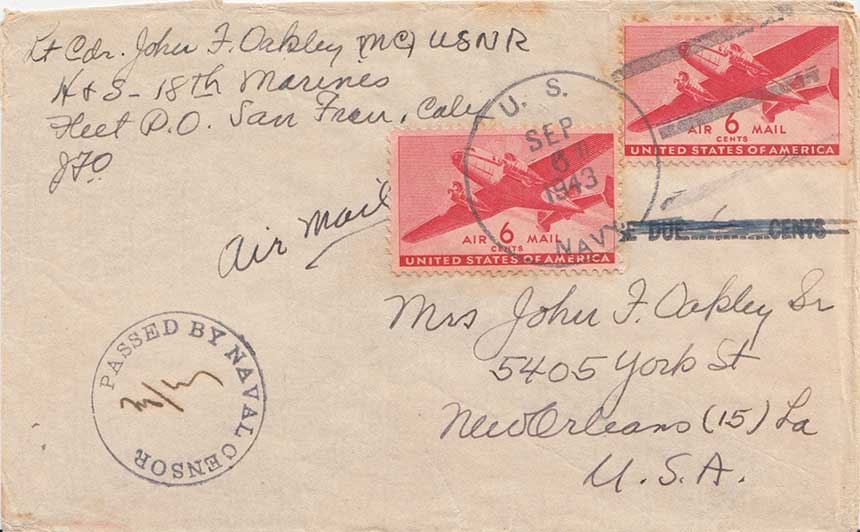 Lt Cdr. John F. Oakley (MC) USNR
H & S - 18th Marines
Fleet P.O. San Fran, Calif
Air Mail
U. S. NAVY
SEP
1943
AIR 6 MAIL
CENTS
UNITED STATES OF AMERICA
AIR 6 MAIL
CENTS
UNITED STATES OF AMERICA
DUE CENTS
PASSED BY NAVAL CENSOR
Mrs John F. Oakley Sr
5405 York St
New Orleans (15) La
U.S.A.